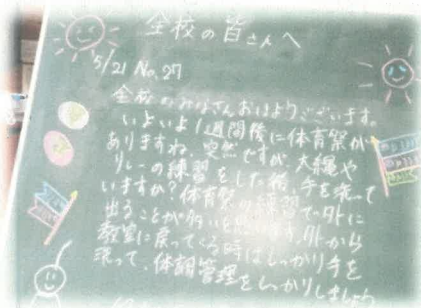 全校の皆さんへ
5/21 No.27
全校のみなさんおはようございます。
いよいよ1週間後に体育祭が
ありますね。突然ですが、大縄や
リレーの練習をした後、手を洗って
いますか?体育祭の練習で外に
出ることが多いと思います。外から
教室に戻ってくる時はしっかり手を
洗って、体調管理をしっかりしましょう